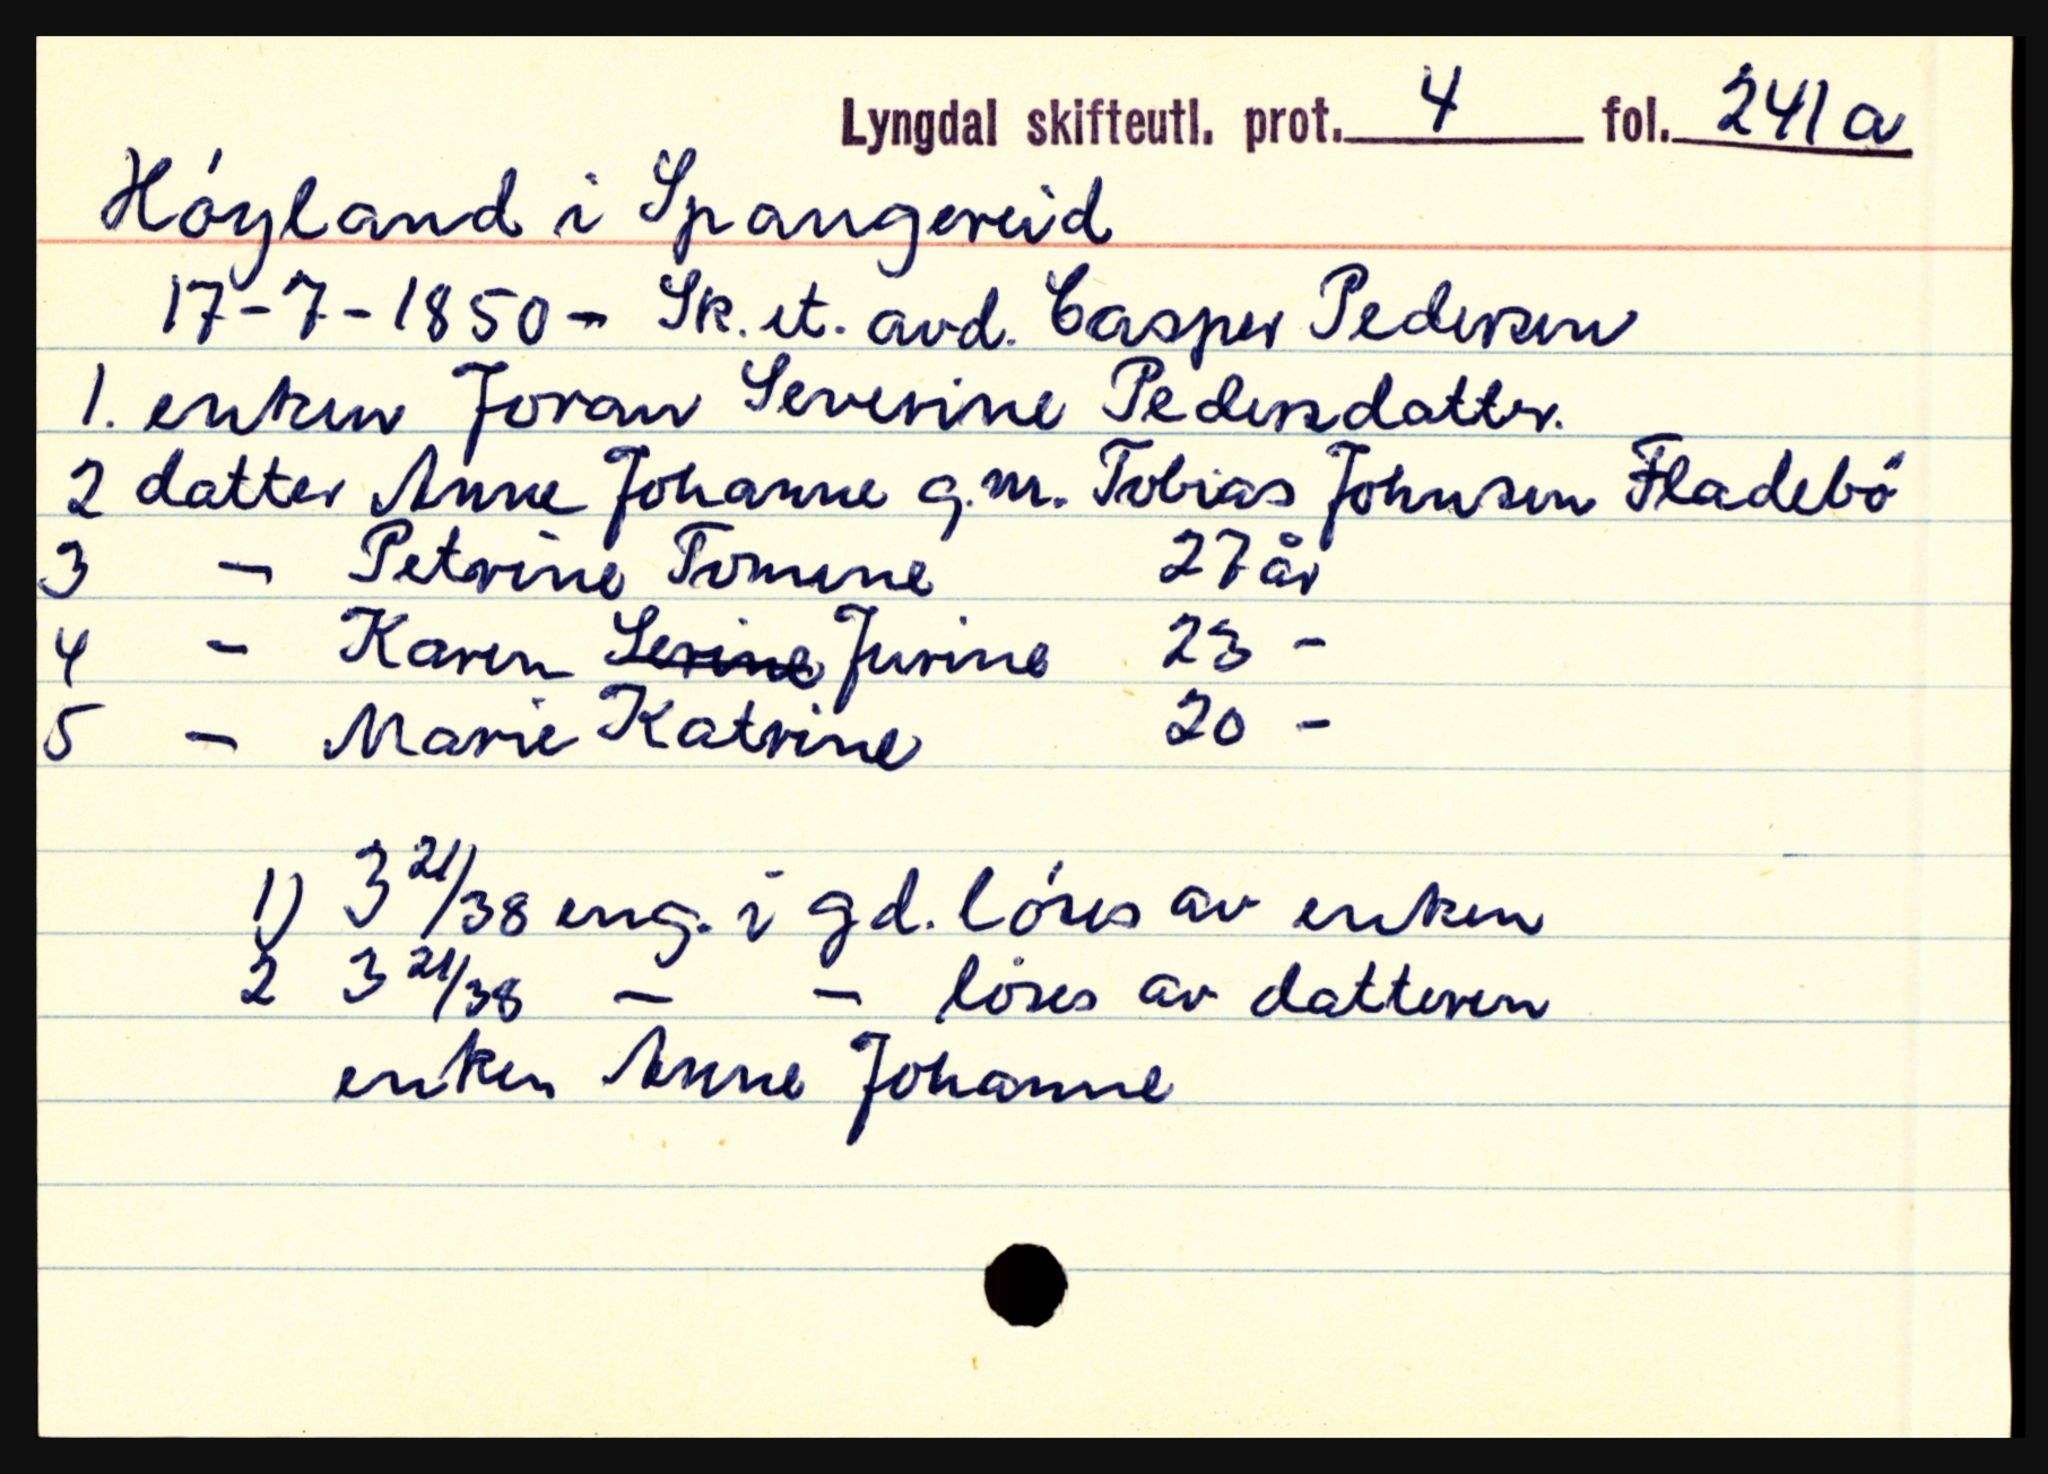 Lyngdal skifteutl. prot. 4 fol. 241 a
Höyland i Spangereid
17-7-1850 - Sk. et. avd. Casper Pedersen
1. enken Joran Severine Pedersdatter.
2 datter Anne Johanne g.m. Tobias Johnsen Fladebö
3 - Petrine Tomine 27 år
4 - Karen Serine Jurine 23 -
5 - Marie Katrine 20 -
1) 3 21/38 eng. i gd. löses av enken
2 3 21/38 - - löses av datteren
enken Anne Johanne